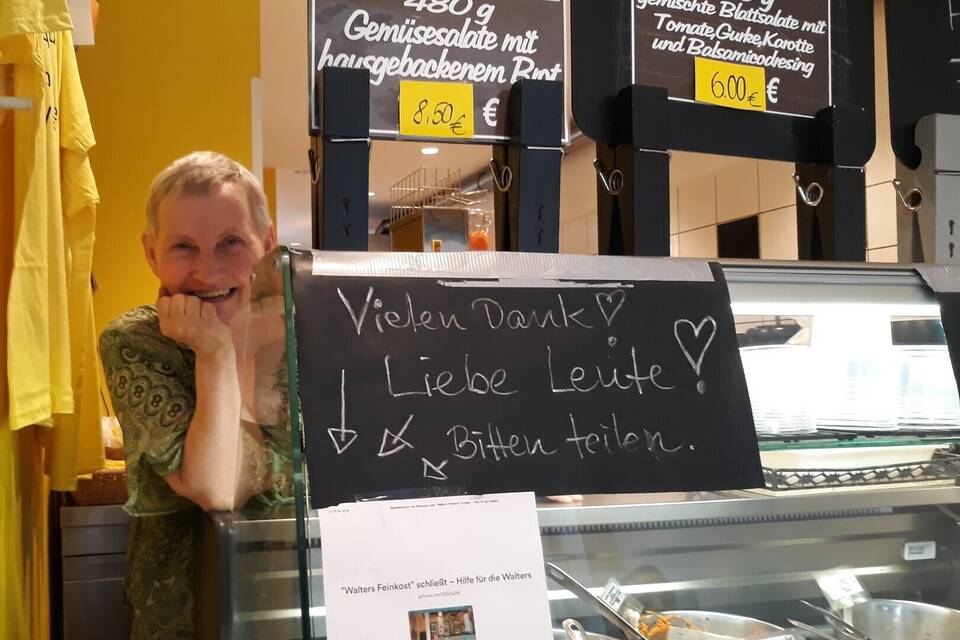 480 g
Gemüsesalate mit
hausgebackenem Brot
8,50 €
€
gemischte Blattsalate mit
Tomate,Gurke,Karotte
und Balsamicodresing
6.00 €
€
Vielen Dank!
Liebe Leute!
Bitten teilen.
"Walters Feinkost" schließt – Hilfe für die Walters